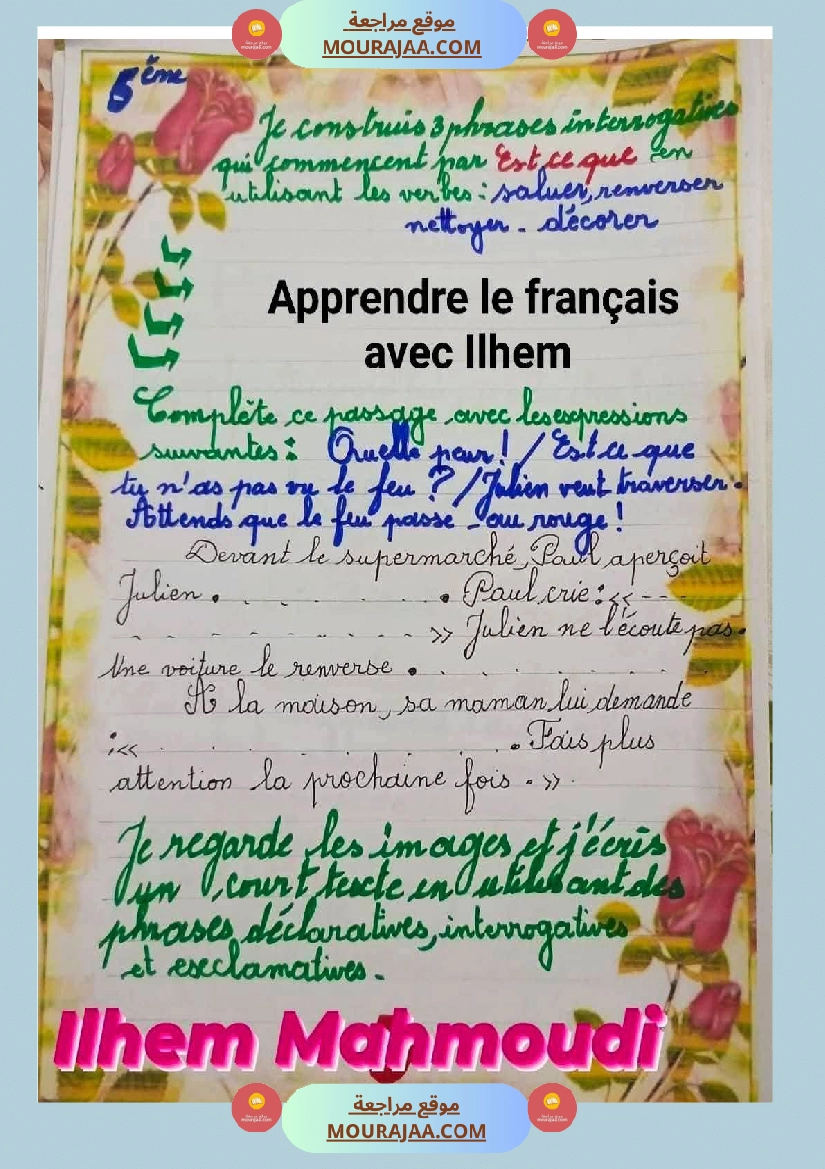 موقع مراجعة
MOURAJAA.COM
5ème
Je construis 3 phrases interrogatives
qui commencent par Est ce que en
utilisant les verbes : saluer, renverser
nettoyer - décorer
Apprendre le français
avec Ilhem
Complète ce passage avec les expressions
suivantes : Quelle peur ! / Est ce que
tu n'as pas vu le feu ? / Julien veut traverser.
Attends que le feu passe au rouge !
Devant le supermarché, Paul aperçoit
Julien . . . . . . . . Paul crie : << - - -
. . . . . . . . . >> Julien ne l'écoute pas.
Une voiture le renverse . . . . . . . .
A la maison, sa maman lui demande
: << . . . . . . . . . Fais plus
attention la prochaine fois . >>
Je regarde les images et j'écris
un court texte en utilisant des
phrases déclaratives, interrogatives
et exclamatives .
Ilhem Mahmoudi
موقع مراجعة
MOURAJAA.COM